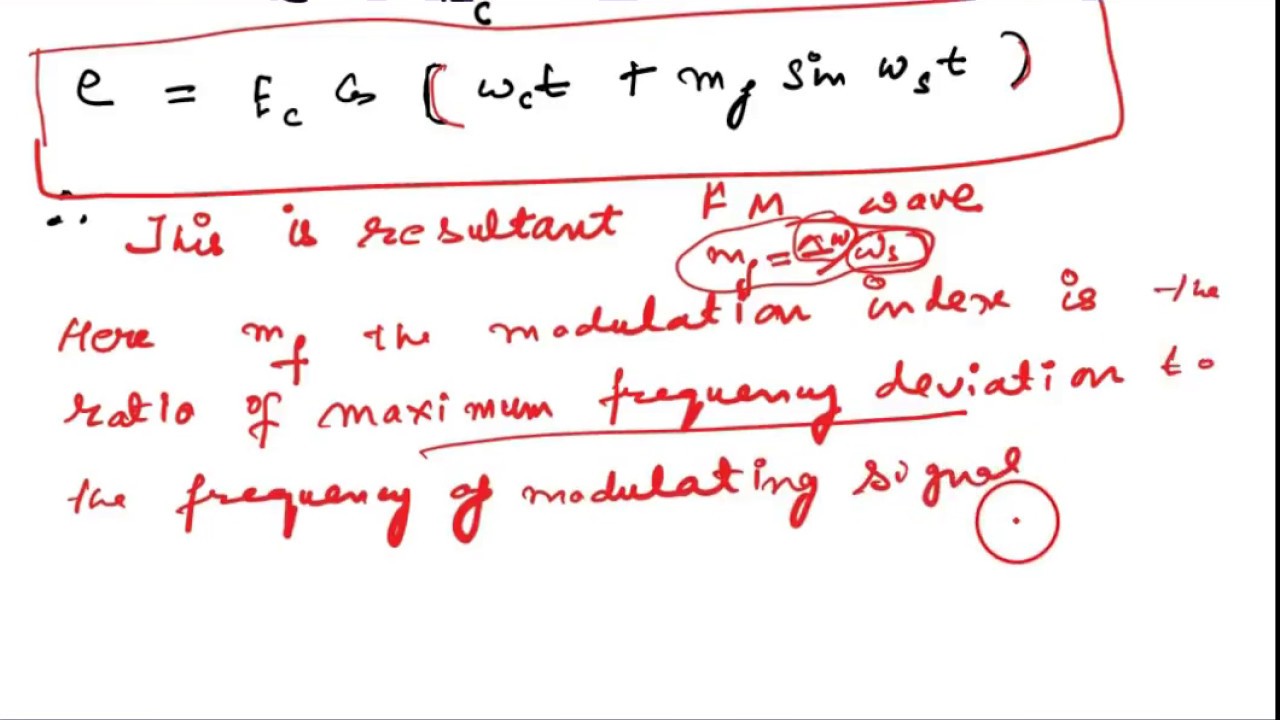 c
e = E_c Cos ( ω_c t + m_f sin ω_s t )
∴ This is resultant FM wave
m_f = Δω/ω_s
Here m_f the modulation index is the
ratio of maximum frequency deviation to
the frequency of modulating signal